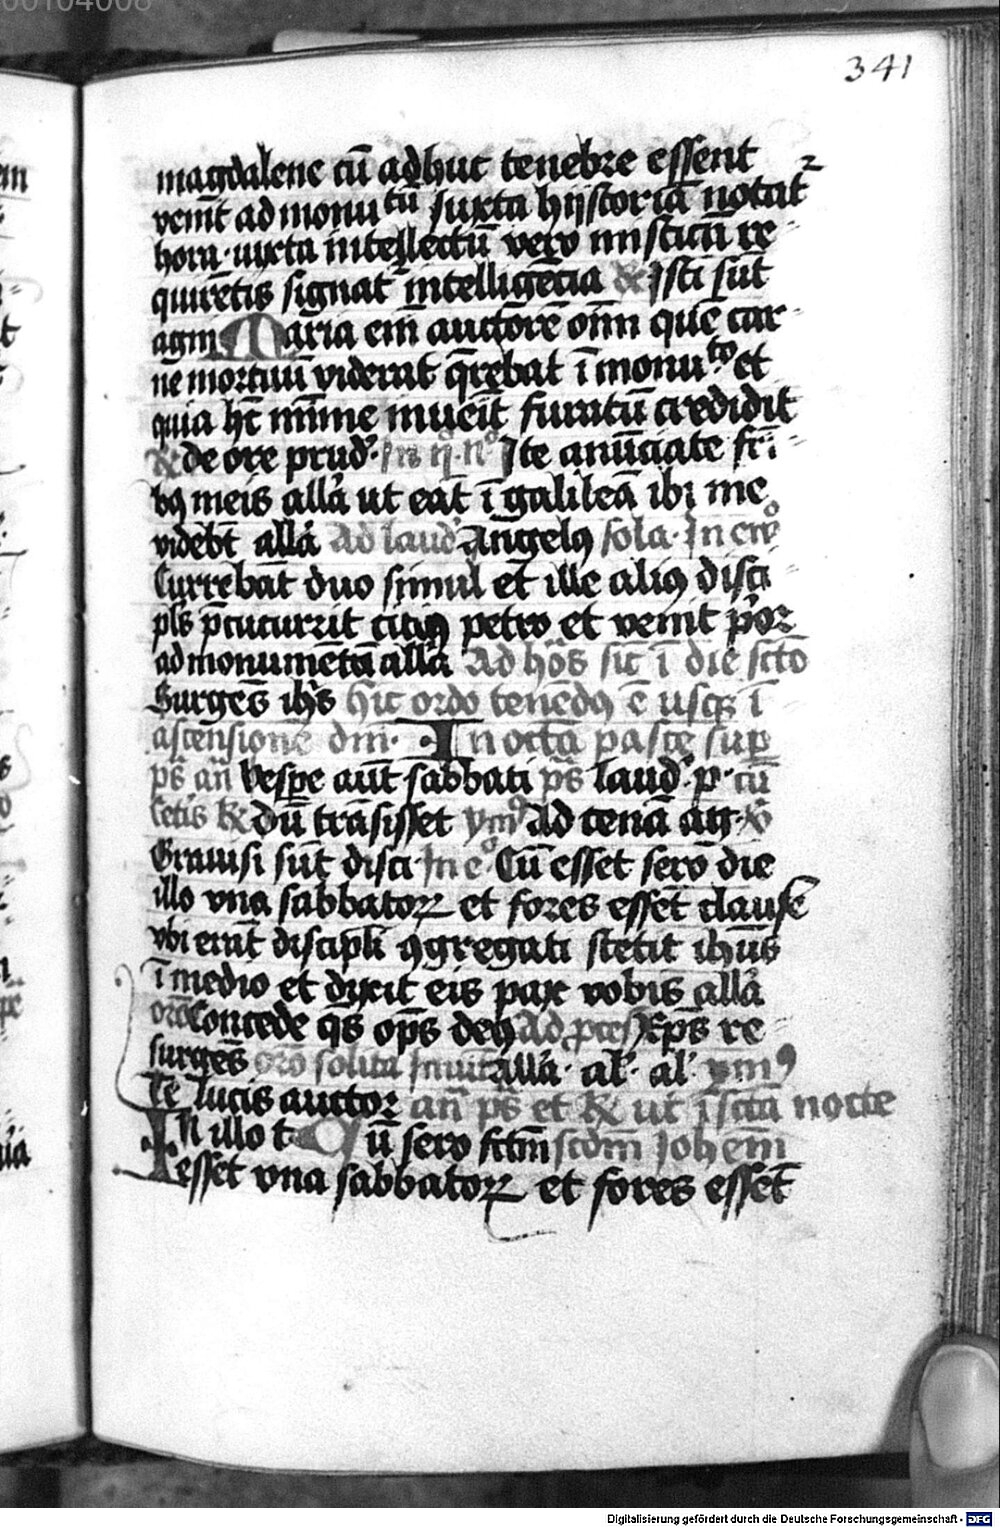 00104008
341
magdalene cū adhuc tenebre essent
venīt ad monutū Juxta hijstoriā notat᷑
hora iuxta intellectū vero misticū re
quirētis signat᷑ intelligēcia Isti sūt
agni Maria em̄ auctorē om̄ quē car
ne mortuū viderat q̄rebat ī monuto et
quia hc̄ mīme inueīt furatū credidit
de ore prud Ite anūciate fr̄i
bꝯ meis allā ut eāt ī galileā ibi me
videbt̄ allā Ad laud Angelꝯ sola In ero
Currebāt duo simul et ille aliꝯ disci
pls p̄cucurrit citiꝯ petro et venit p̄or
ad monumētū allā Ad hōs sic ī die scto
Surgēs ihs̄ hic ordo tenēdꝯ ē usqꝫ ī
ascensionē dm̄ In octa pasce sup
ps̄ an̄ Vespe aūt sabbati ps̄ laud p cū
Dū trāsisset ym Ad cenā
Gauisi sūt disci In e Cū esset sero die
illo vna sabbatoꝝ et fores essēt clause
vbi erāt discipli ꝯgregati stetit ihūs
ī medio et dixit eis pax vobis allā
oro Concede qs̄ ops̄ deꝯ Ad pces Xps̄ re
surgēs oro solita Inuit allā al al ymꝯ
Te lucis auctor an̄ ps̄ et ut ī sctā nocte
In illo t Cū sero fctm̄ scdm̄ Johem̄
esset vna sabbatoꝝ et fores essēt
Digitalisierung gefördert durch die Deutsche Forschungsgemeinschaft - DFG